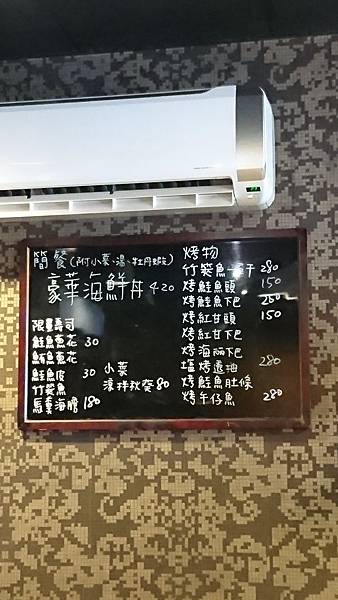 簡餐(附小菜、湯、牡丹蝦)
豪華海鮮丼 420
限量壽司
鮭魚蔥花 30
鮪魚蔥花
鮭魚 30
竹筴魚
馬糞海膽 180
小菜
漬拌秋葵 80
烤物
竹筴魚一夜干 280
烤鮭魚頭 150
烤鮭魚下巴 250
烤紅甘頭 150
烤紅甘下巴
烤海鱺下巴
塩烤透抽 280
烤鮭魚肚條
烤午仔魚 280